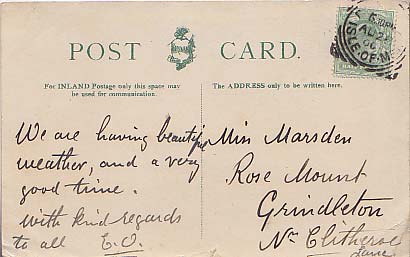 POST CARD.
For INLAND Postage only this space may
be used for communication.
The ADDRESS only to be written here.
We are having beautiful
weather, and a very
good time.
With kind regards
to all E.O.
Miss Marsden
Rose Mount
Grindleton
Nr Clitheroe
Lancs
ISLE-OF-M